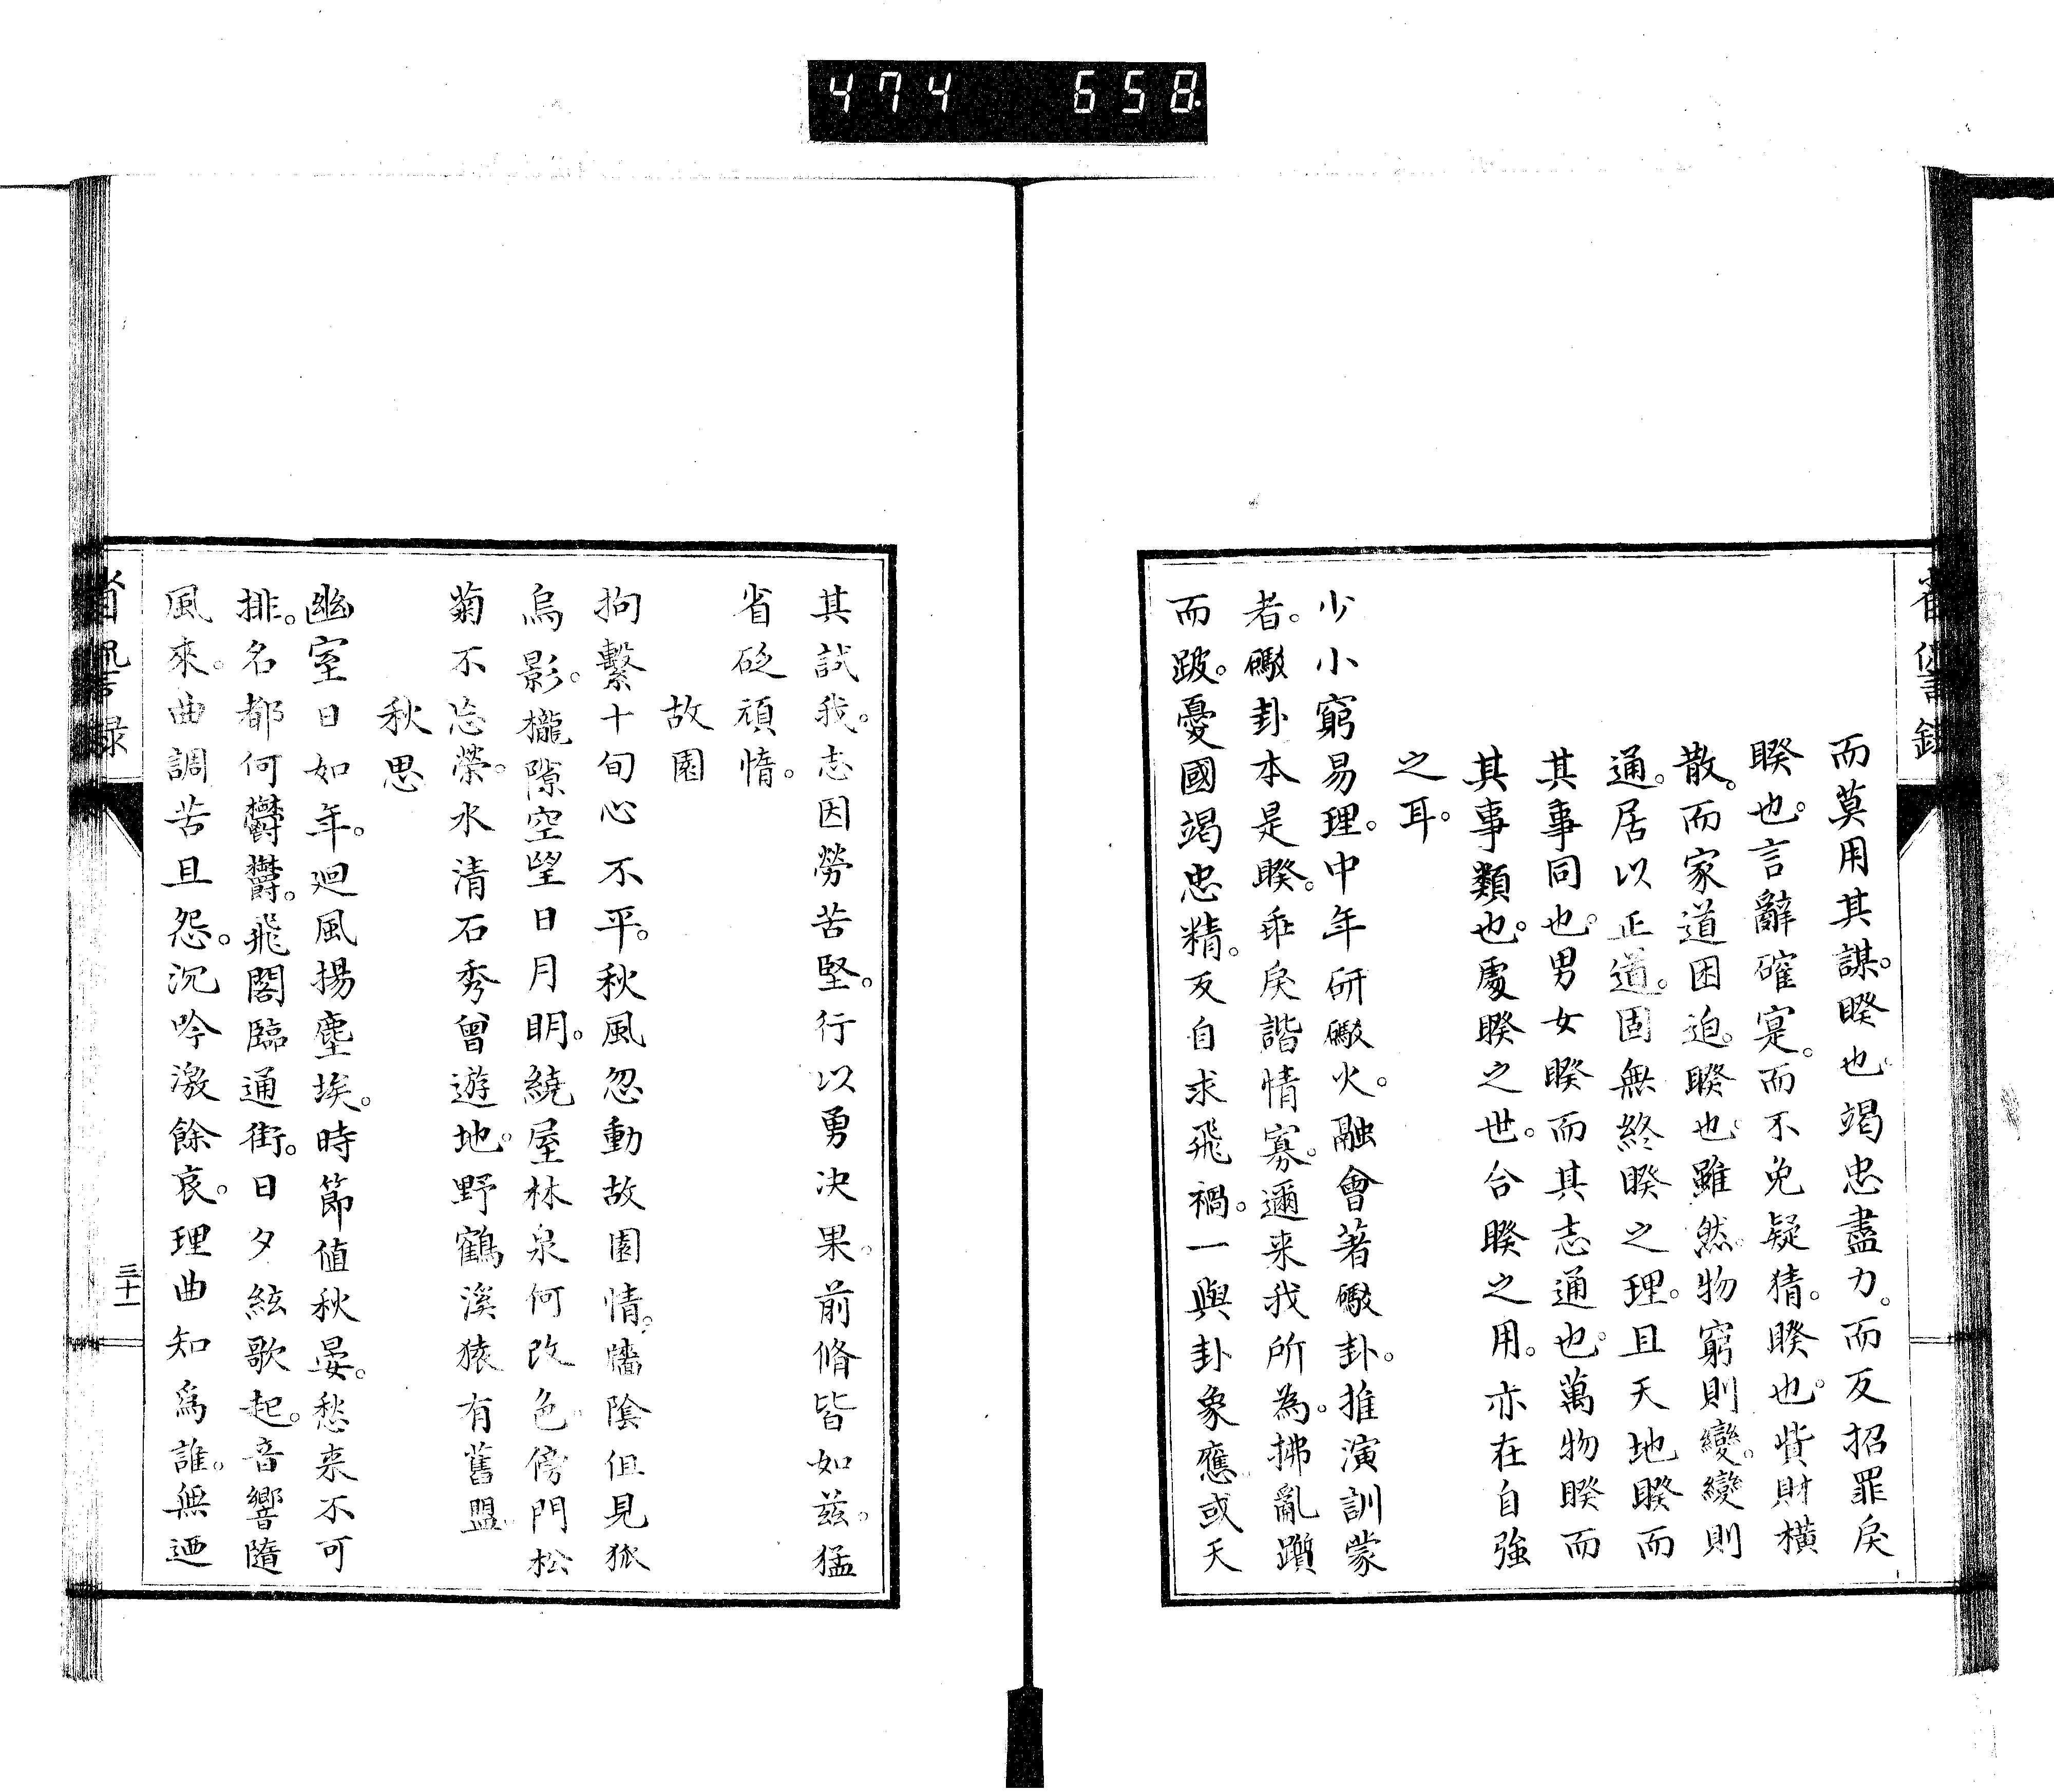 474 658
省諐録
而莫用其謀。睽也。竭忠盡力。而反招罪戾
睽也。言辭確寔。而不免疑猜。睽也。貲財橫
散。而家道困迫。睽也。雖然。物窮則變。變則
通。居以正道。固無終睽之理。且天地睽而
其事同也。男女睽而其志通也。萬物睽而
其事類也。處睽之世。合睽之用。亦在自強
之耳。
少小窮易理。中年研礮火。融會著礮卦。推演訓蒙
者。礮卦本是睽。乖戾諧情寡。邇来我所為。拂亂躓
而跛。憂國竭忠精。反自求飛禍。一與卦象應。或天
其試我。志因勞苦堅。行以勇决果。前脩皆如茲。猛
省砭頑惰。
故園
拘繫十旬心不平。秋風忽動故園情。牆陰但見狐
烏影。櫳隙空望日月明。繞屋林泉何改色。傍門松
菊不忘榮。水清石秀曾遊地。野鶴溪猿有舊盟
秋思
幽室日如年。廻風揚塵埃。時節値秋晏。愁来不可
排。名都何欝欝。飛閣臨通街。日夕絃歌起。音響隨
風來。曲調苦且怨。沉吟激餘哀。理曲知爲誰。無迺
省諐録
三十一